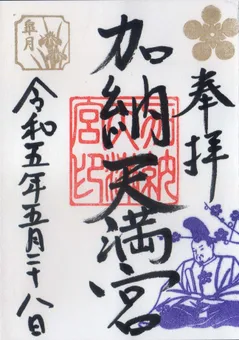 奉拝
加納天満宮
加納天満宮印
令和五年五月二十八日
皐月